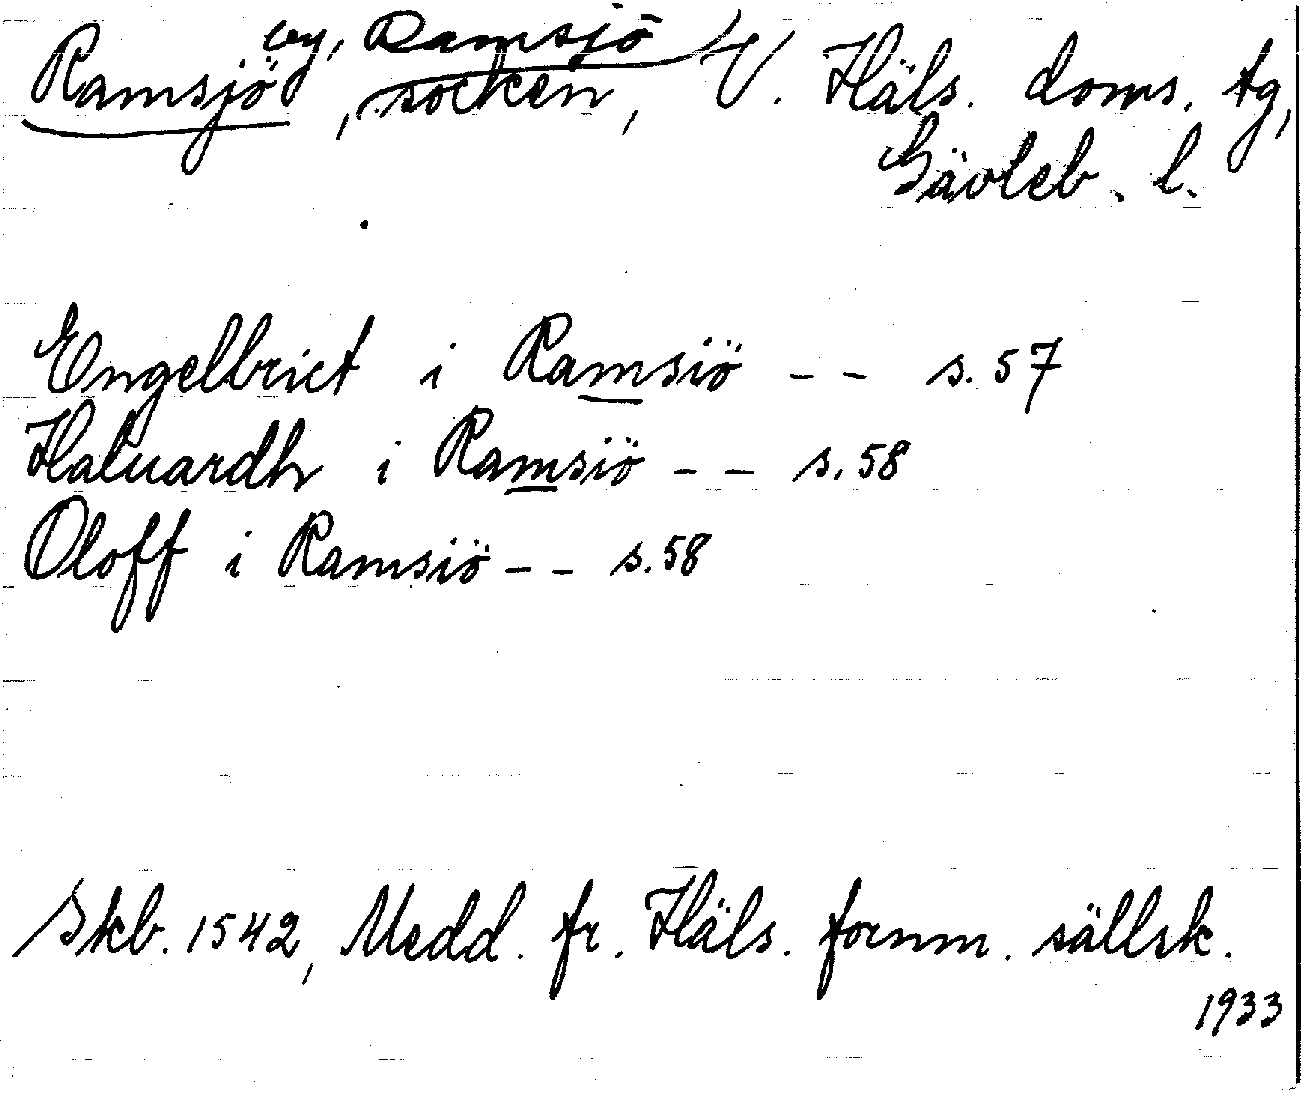 Ramsjö by, Ramsjö, socken, V. Häls. doms. tg,
Gävleb. l.
Engelbrict i Ramsiö - - s. 57
Haluardh i Ramsiö - - s. 58
Oloff i Ramsiö - - s. 58
Skb. 1542, Medd. fr. Häls. fornm. sällsk.
1933